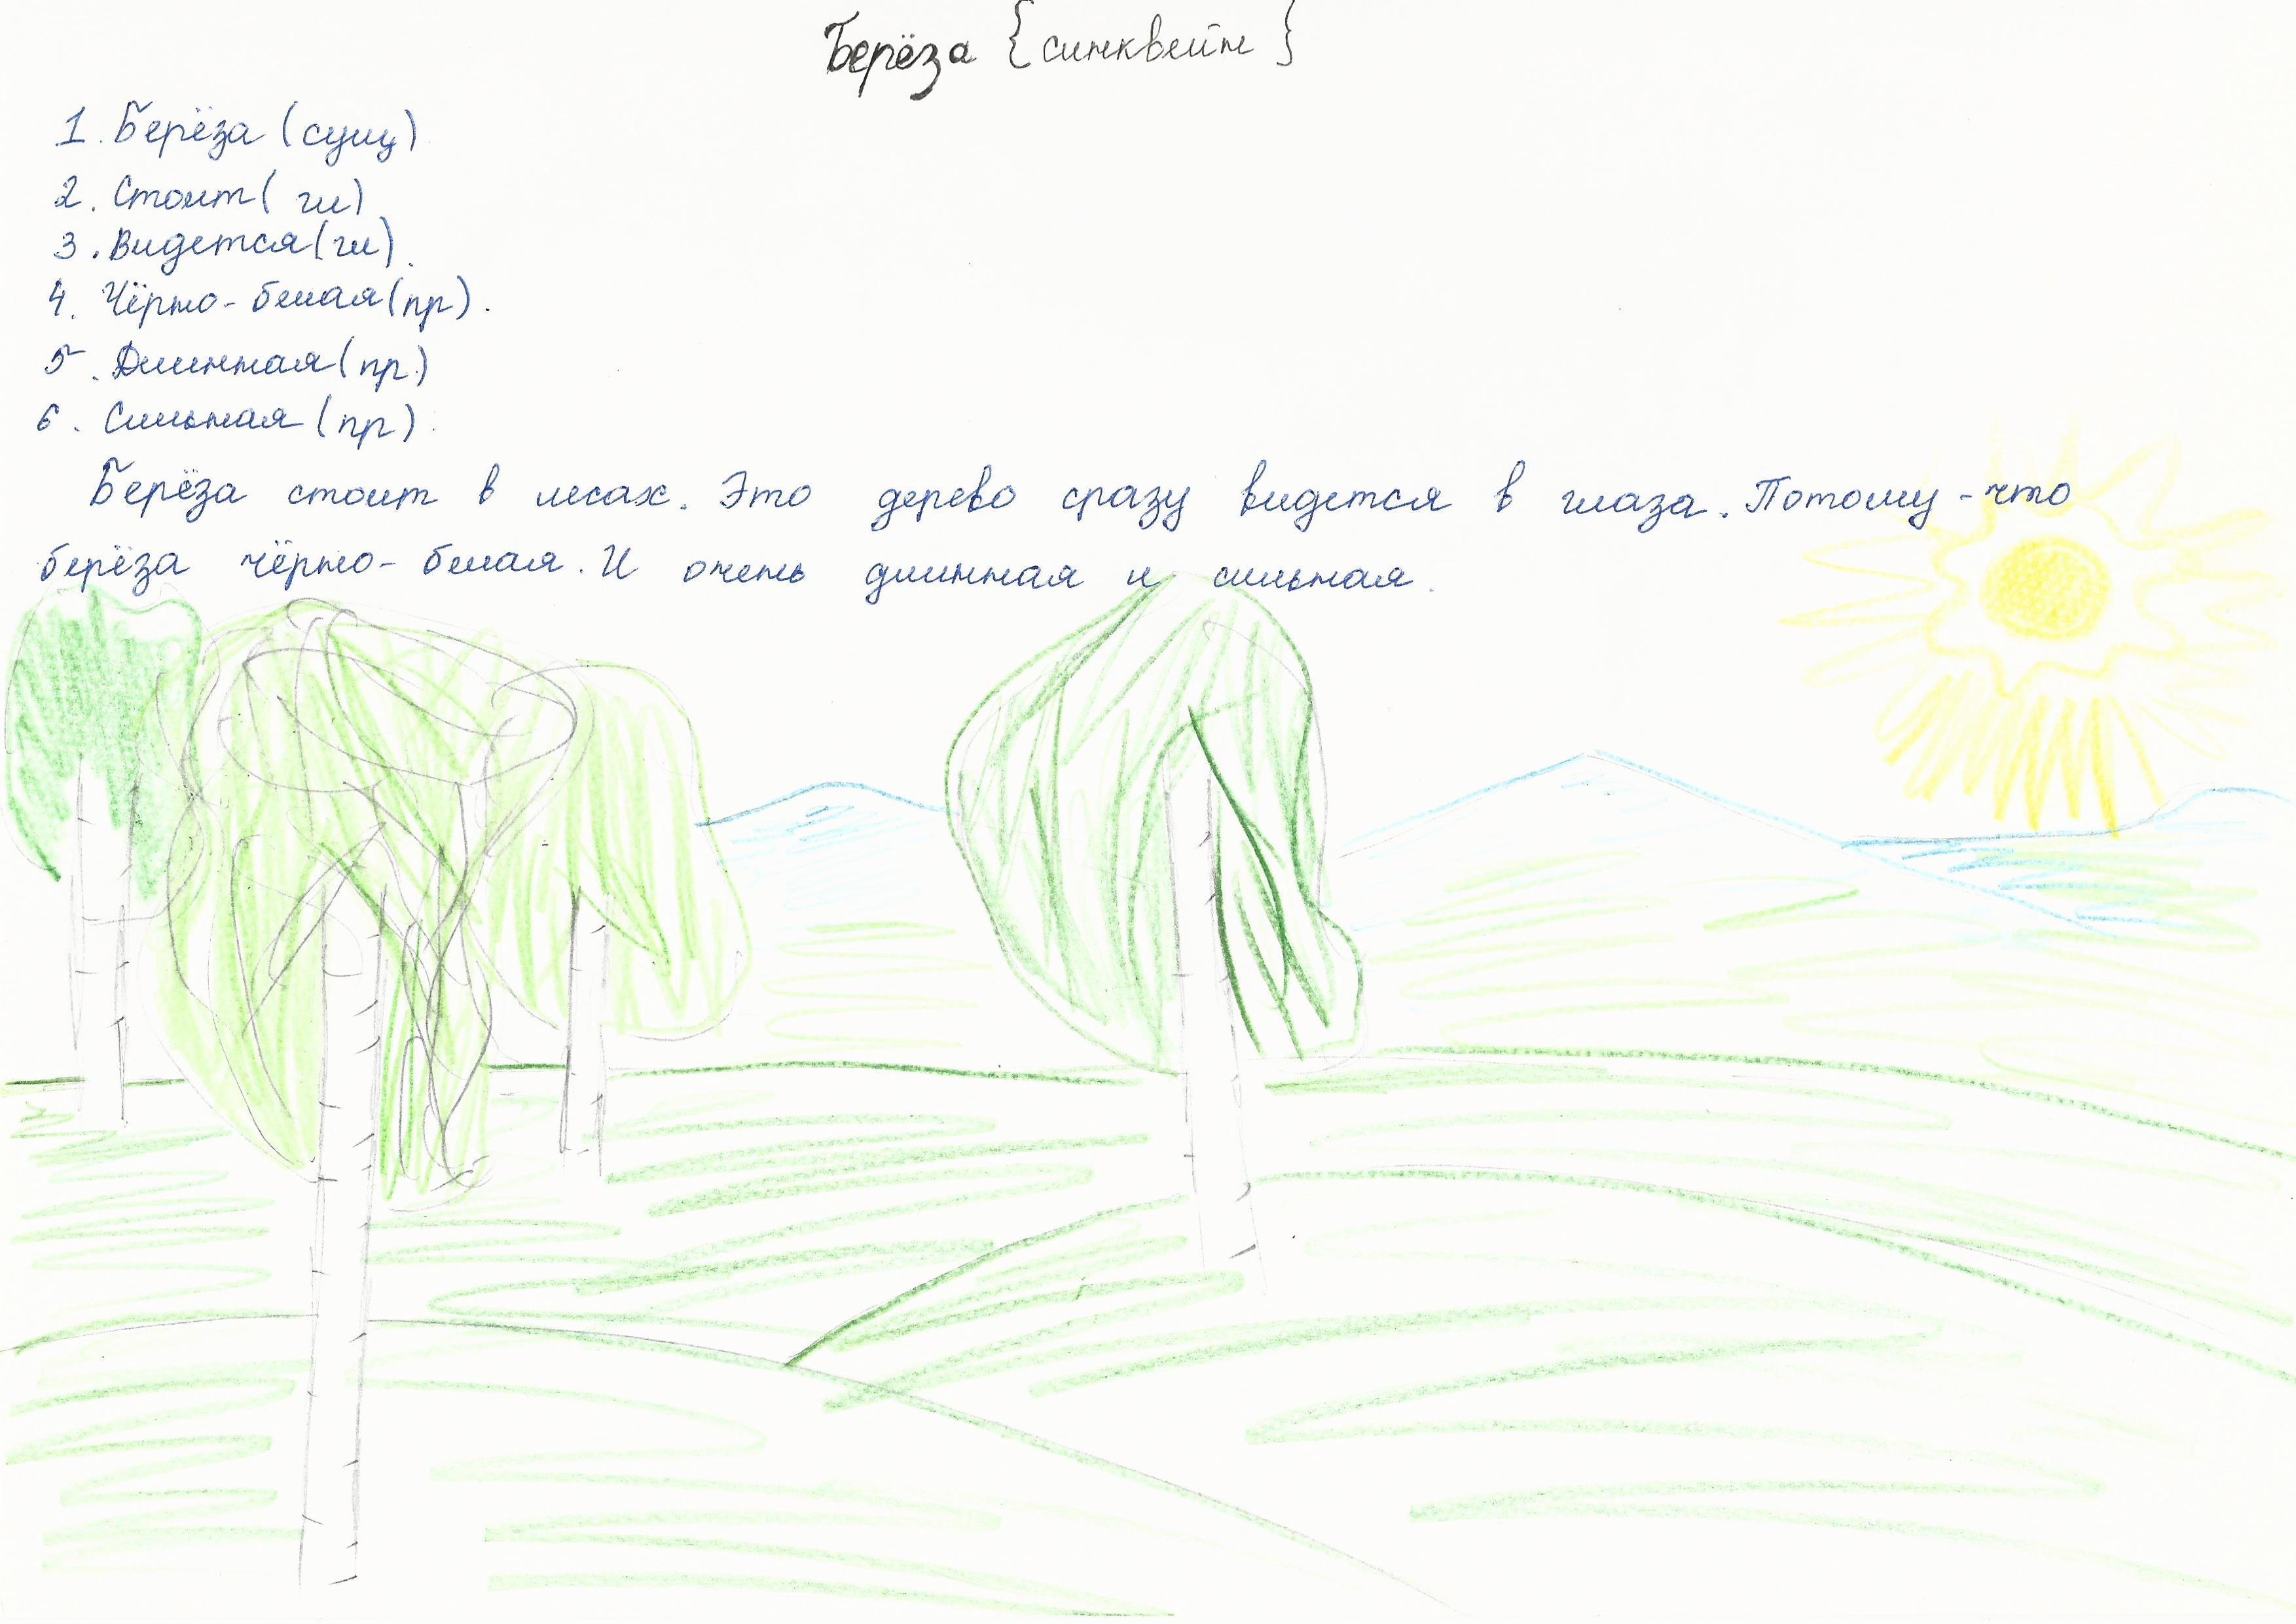 Берёза {синквейн}
1. Берёза (сущ)
2. Стоит ( гл)
3. Видется (гл).
4. Чёрно-белая (пр).
5. Длинная (пр.)
6. Сильная (пр).
Берёза стоит в лесах. Это дерево сразу видется в глаза. Потому-что
берёза чёрно-белая. И очень длинная и сильная.